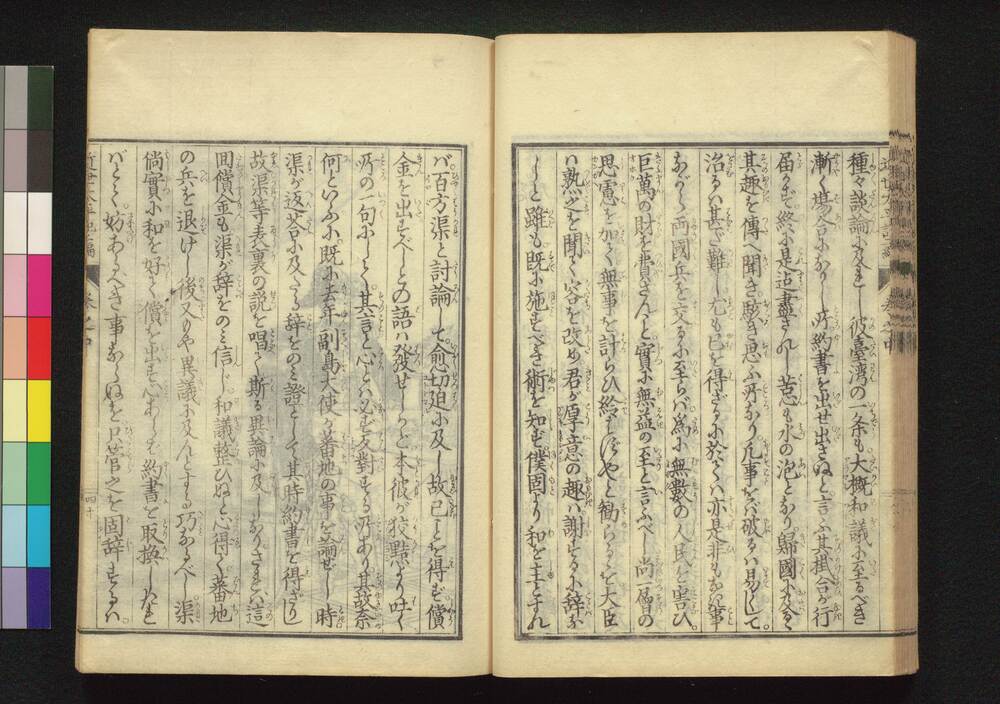 種々談論に及ビ彼臺灣の一条も大概和議に至るべき
漸く場合になりし所約書を出せ出さぬと言ふ其掛合が行
届かずして終に是迄盡されし意も水の泡となり歸國に及ぶ
其趣を傳へ聞き駭き思ふ所なり凡事をバ破るハ易くして。
治るハ甚だ難し尤も已を得ざるに於てハ亦是非もなき事
ながら両國兵を交るに至らバ為に無數の人民を害ひ。
巨萬の財を費さんと實に無益の至と言ふべし尚層の
思慮を加へて無事を計らひ給はずやと勧らるゝを大臣
ハ熟之を聞て容を改め君が厚意の趣ハ謝するに辞な
しと雖も既に施すべき術を知ず僕固より和を主とすれ
バ百方渠と討論して愈切迫に及し故已ことを得ず償
金を出すべしとの語ハ發せしかど本彼が狡黠より吐く
所の一句にして其言と心とハ必ず反對する所あり其故奈
何といふに。既に去年副島大使が蕃地の事を論ぜし時
渠が返荅に及たる辞をのミ證として其時約書を得ざり
故渠等表裏の説を唱へて斯る異論に及しなりされバ這
回償金も渠が辞をのミ信じ和議整ひぬと心得て蕃地
の兵を退けし後又もや異議に及んとする巧なるべし渠
倘實に和を好て償を出す心あらバ約書を取換したれ
バとて妨あるべき事ならぬを只管之を固辞するハ。
四十